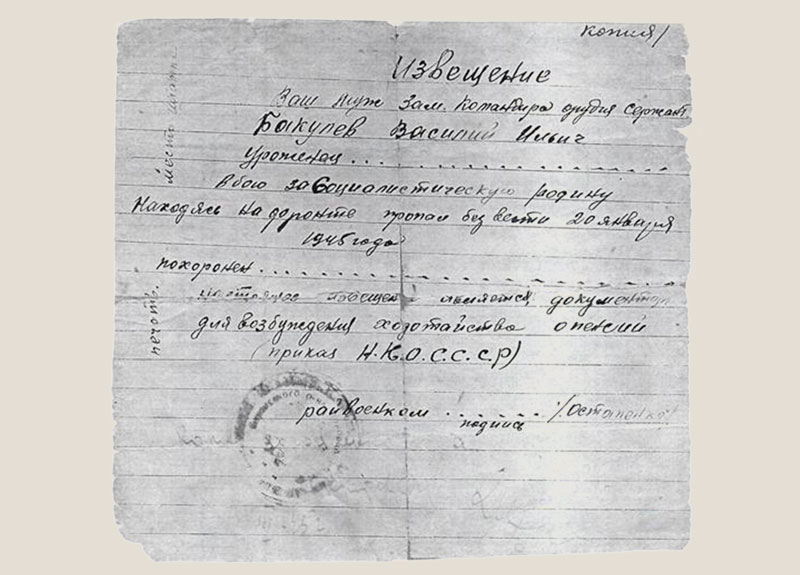 Копия/
Извещение
Ваш муж Зам. Командира орудия Сержант
Бакулев Василий Ильич
Уроженец . . . . . . . . . . . . . . . . .
в бою за Социалистическую родину
Находясь на форонте пропал без вести 20 января
1945 года
похоронен . . . . . . . . . . . . . . . . . . . .
настоящее извещен является документом
для возбуждения ходотайства о пенсии
(приказ Н.К.О.С.С.С.Р)
райвоенком . . . . . . . /Остапенко/
подпись
место
печать.